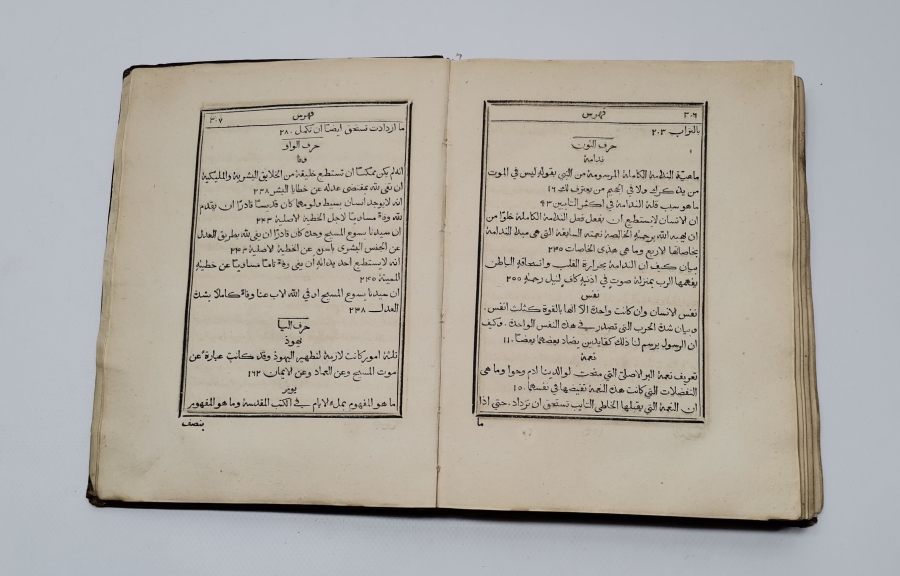 ٣٠٦ فهرس
بالتراب ٢٠٣
حرف النون
ندامة
ماهية الندامة الكاملة المرسومة من النبي بقوله ليس في الموت
من يذكرك ولا في الجحيم من يعترف لك ١٦
ما هو سبب قلة الندامة في اكثر التايبين ٤٣
ان الانسان لايستطيع ان يفعل فعل الندامة الكاملة خلوًا من
ان يهبه الله برحمته الخالصة نعمته السابقة التي هي مبدا الندامة
بخاصاتها الاربع وما هي هذي الخاصات ٢٣٥
بيان كيف ان الندامة بحرارة القلب وانسحاقه الباطن
يفهمها الرب بمنزلة صوت في اذنيه كاف لنيل رحمته ٢٥٥
نفس
نفس الانسان وان كانت واحدة الا انها بالقوة كثلث انفس.
وبيان شدة الحرب التي تصدر في هذه النفس الواحدة. وكيف
ان الرسول يرسم لنا ذلك كقايدين يضاد بعضهما بعضًا. ١١
نعمة
تعريف نعمة البر الاصلي التي منحت لوالدينا ادم وحوا وما هي
التفضلات التي كانت هذه النعمة تفيضها في نفسيهما. ١٥
ان النعمة التي يقبلها الخاطي التايب تستحق ان تزداد. حتى اذا
ما
فهرس ٣٠٧
ما ازدادت تستحق ايضًا ان تكمل. ٢٨٠
حرف الواو
وفا
انه لم يكن ممكنًا ان تستطيع خليقة من الخلايق البشرية والمليكية
ان تفي لله بمقتضى عدله عن خطايا البشر ٢٣٨
انه لايوجد انسان بسيط ولو مهما كان قديسًا قادرًا ان يقدم
لله وفاءً مساويًا لاجل الخطية الاصلية ٢٤٣
ان سيدنا يسوع المسيح وحده كان قادرًا ان يفي لله بطريق العدل
عن الجنس البشري باسره عن الخطية الاصلية ٢٤٣
انه لايستطيع احد بذاته ان يفي وفاءً تامًا مساويًا عن خطيته
المميتة ٢٤٥
ان سيدنا يسوع المسيح اوفي الله الاب عنا وفاءً كاملًا بشدة
العدل ٢٣٨
حرف اليا
يهوذ
ثلثة امور كانت لازمة لتطهير اليهوذ وقد كانت عبارة عن
موت المسيح وعن العماد وعن الايمان ١٦٢
يوبر
ما هو المفهوم بملء الايام في الكتب المقدسة وما هو المفهوم
بنصف